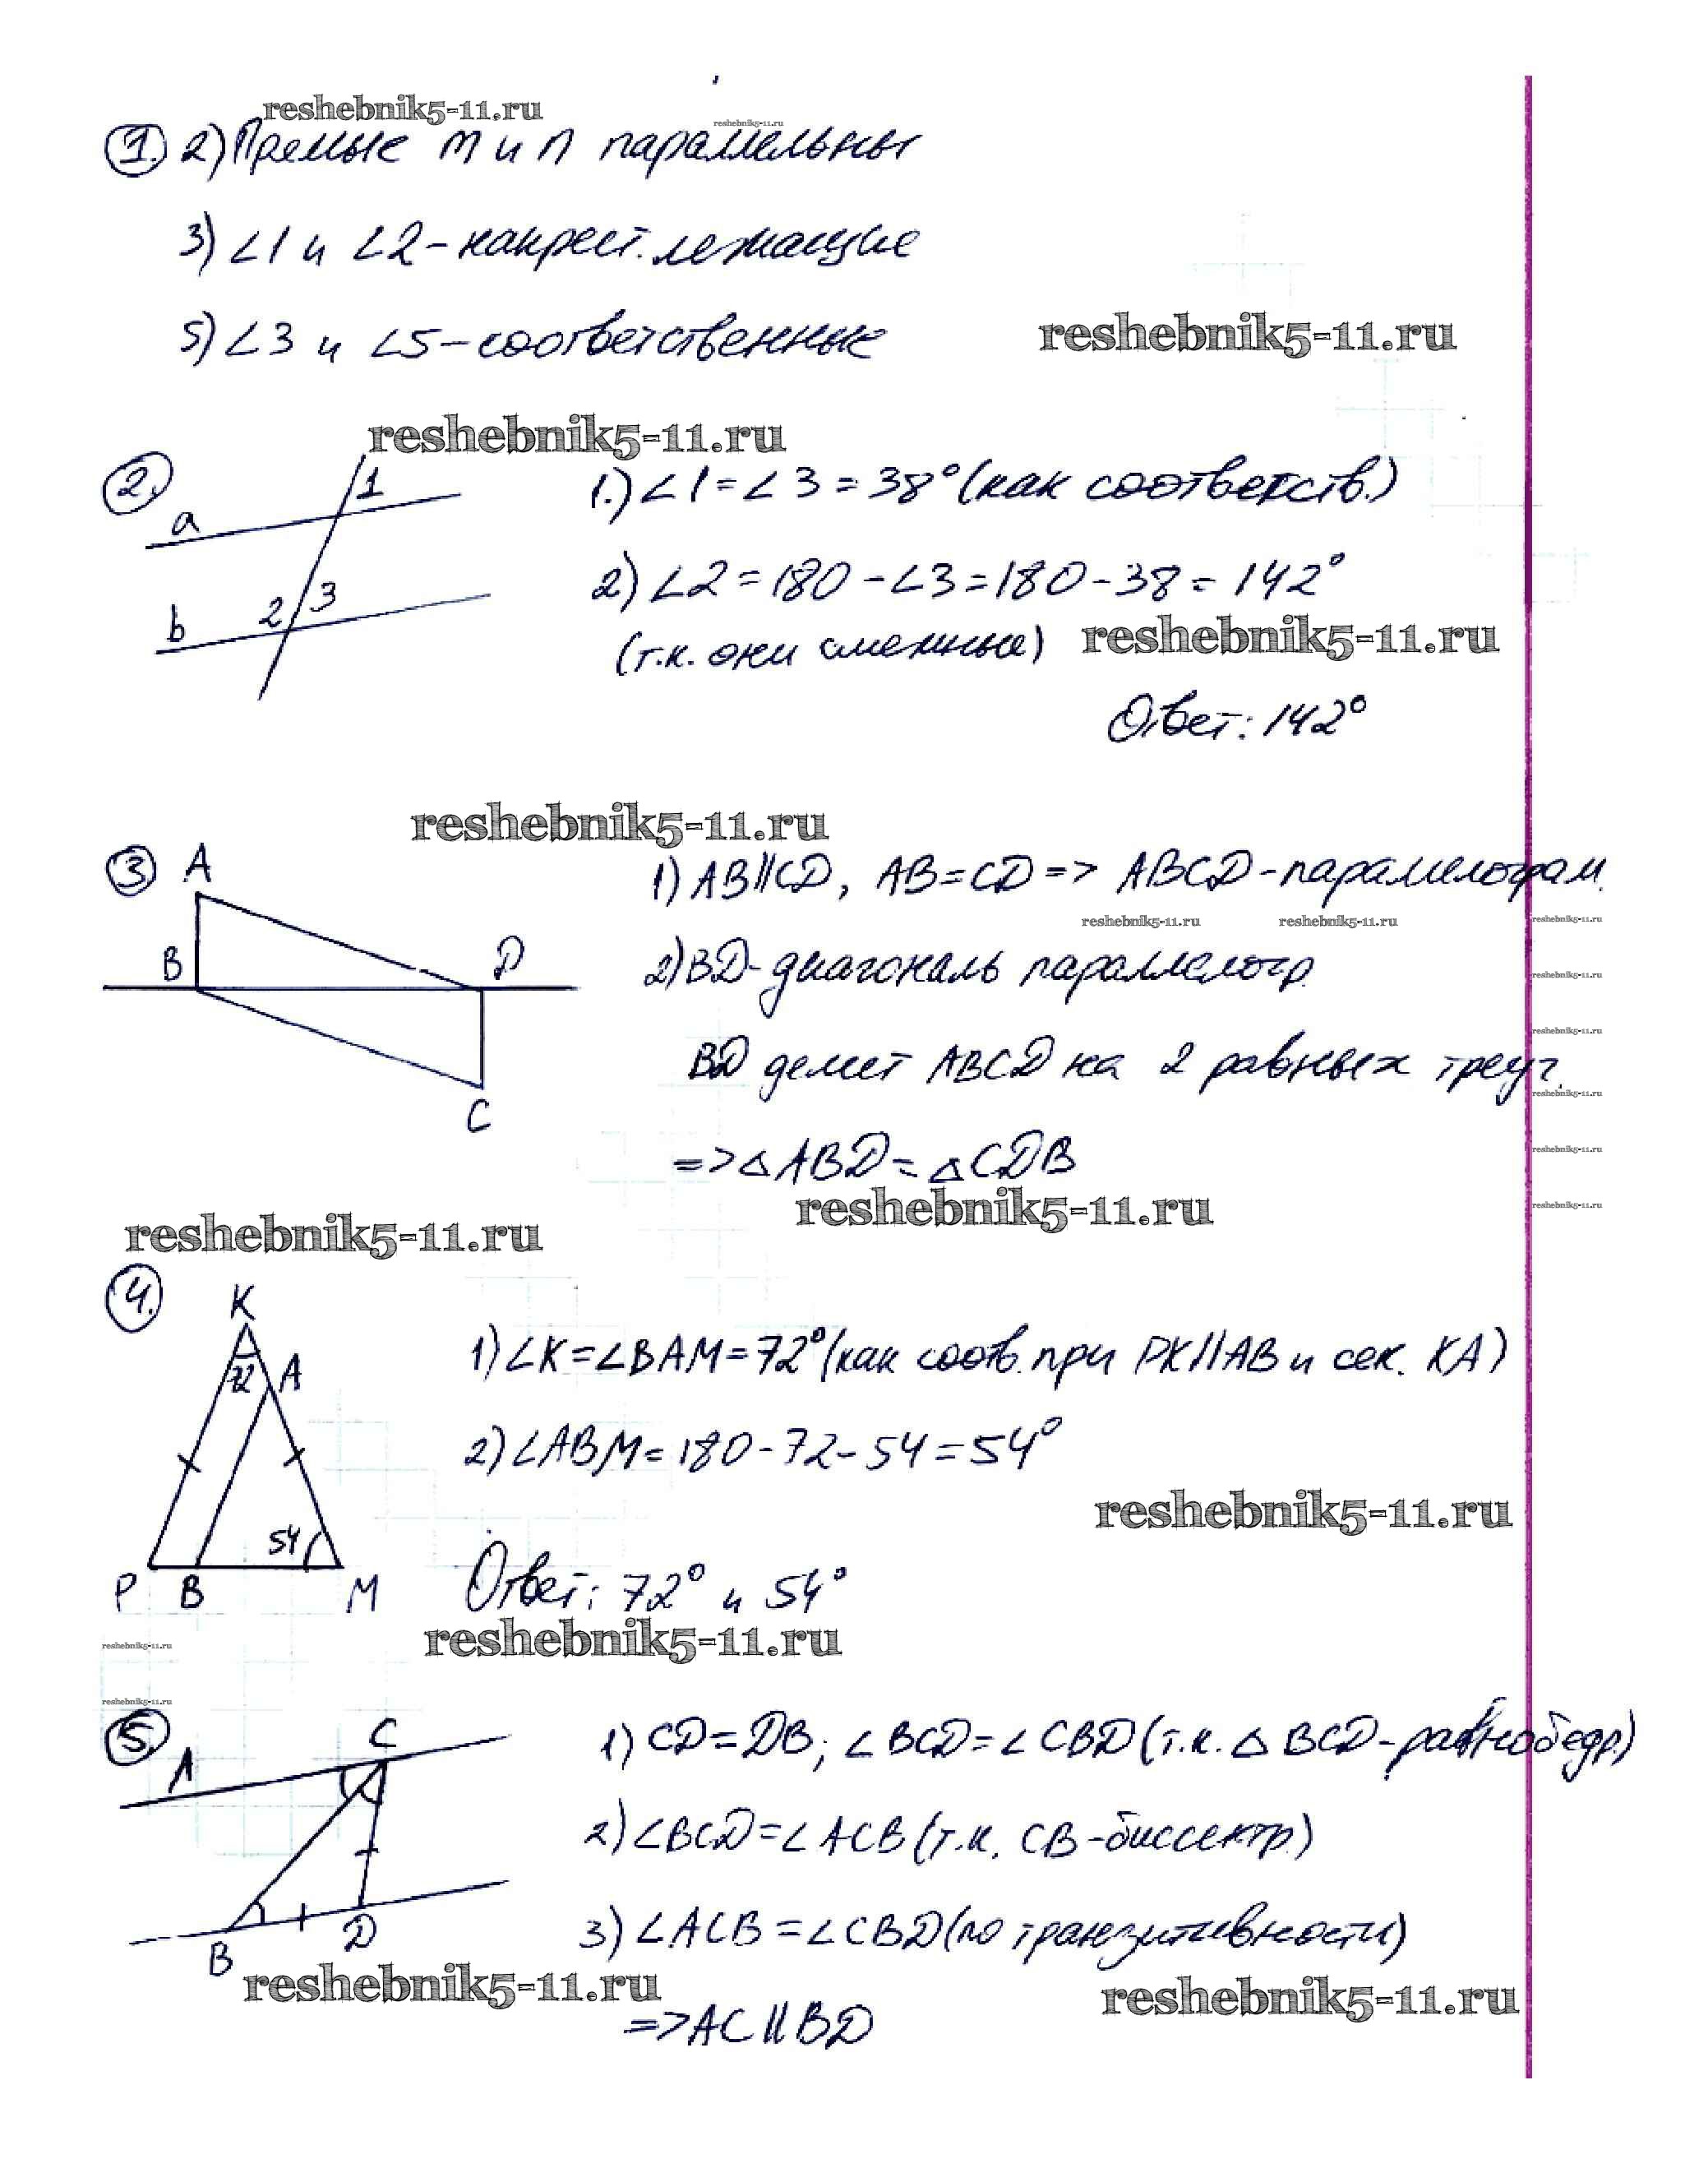 reshebnik5-11.ru
reshebnik5-11.ru
1. 2) Прямые m и n параллельны
3) ∠1 и ∠2 - накрест. лежащие
5) ∠3 и ∠5 - соответственные
reshebnik5-11.ru
reshebnik5-11.ru
2.
1
a
2 3
b
1.) ∠1 = ∠3 = 38° (как соответств.)
2) ∠2 = 180 - ∠3 = 180 - 38 = 142°
(т.к. они смежные)
reshebnik5-11.ru
Ответ: 142°
reshebnik5-11.ru
3
A
B
D
C
1) AB∥CD, AB = CD => ABCD - параллелограм.
reshebnik5-11.ru reshebnik5-11.ru reshebnik5-11.ru
2) BD - диагональ параллелогр.
reshebnik5-11.ru
reshebnik5-11.ru
BD делит ABCD на 2 равных треуг.
reshebnik5-11.ru
=> △ABD = △CDB
reshebnik5-11.ru
reshebnik5-11.ru
reshebnik5-11.ru
reshebnik5-11.ru
4.
K
72 A
54
P B M
1) ∠K = ∠BAM = 72° (как соотв. при PK∥AB и сек. KA)
2) ∠ABM = 180 - 72 - 54 = 54°
reshebnik5-11.ru
Ответ: 72° и 54°
reshebnik5-11.ru
reshebnik5-11.ru
reshebnik5-11.ru
5.
A
C
B
D
1) CD = DB; ∠BCD = ∠CBD (т.к. △BCD - равнобедр.)
2) ∠BCD = ∠ACB (т.к. CB - биссектр.)
3) ∠ACB = ∠CBD (по транзитивности)
reshebnik5-11.ru
reshebnik5-11.ru
=> AC∥BD